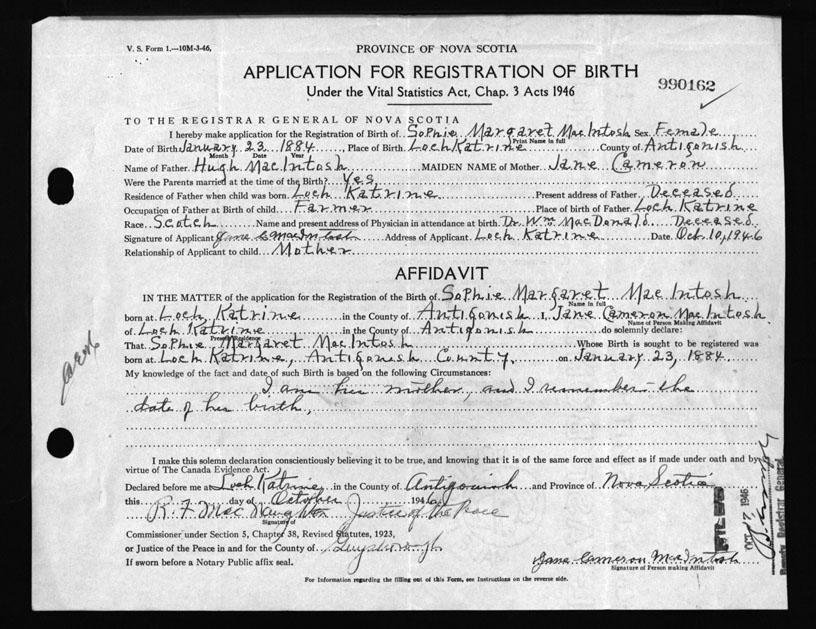 V. S. Form 1.—10M-3-46.
PROVINCE OF NOVA SCOTIA
APPLICATION FOR REGISTRATION OF BIRTH
Under the Vital Statistics Act, Chap. 3 Acts 1946
990162
TO THE REGISTRAR GENERAL OF NOVA SCOTIA
I hereby make application for the Registration of Birth of Sophie Margaret MacIntosh Sex Female
Print Name in full
Date of Birth January 23, 1884, Place of Birth Loch Katrine County of Antigonish
Month Date Year
Name of Father Hugh MacIntosh MAIDEN NAME of Mother Jane Cameron
Were the Parents married at the time of the Birth? Yes
Residence of Father when child was born Loch Katrine Present address of Father Deceased
Occupation of Father at Birth of child Farmer Place of birth of Father Loch Katrine
Race Scotch Name and present address of Physician in attendance at birth Dr. Wm MacDonald Deceased
Signature of Applicant Jane C MacIntosh Address of Applicant Loch Katrine Date Oct 10, 1946
Relationship of Applicant to child Mother
AFFIDAVIT
IN THE MATTER of the application for the Registration of the Birth of Sophie Margaret MacIntosh
Name in full
born at Loch Katrine in the County of Antigonish I, Jane Cameron MacIntosh
Name of Person Making Affidavit
of Loch Katrine in the County of Antigonish do solemnly declare:
Present Residence
That Sophie Margaret MacIntosh Whose Birth is sought to be registered was
born at Loch Katrine, Antigonish County, on January 23, 1884
My knowledge of the fact and date of such Birth is based on the following Circumstances:
I am his mother, and I remember the
date of his birth,
I make this solemn declaration conscientiously believing it to be true, and knowing that it is of the same force and effect as if made under oath and by
virtue of The Canada Evidence Act.
Declared before me at Loch Katrine in the County of Antigonish and Province of Nova Scotia
this day of October 1946
R. F. MacNaughton Justice of the Peace
Signature of
Commissioner under Section 5, Chapter 38, Revised Statutes, 1923,
or Justice of the Peace in and for the County of Guysborough
If sworn before a Notary Public affix seal.
Jane Cameron MacIntosh
Signature of Person making Affidavit
For Information regarding the filling out of this Form, see Instructions on the reverse side.
FILED
OCT 17 1946
Deputy Registrar General